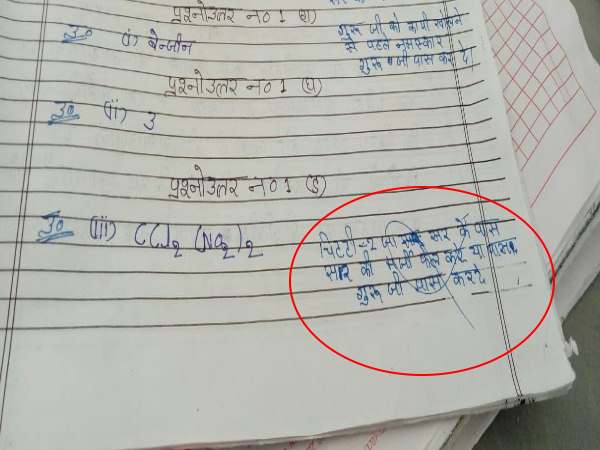 प्रश्नोउत्तर न० 1 (ग)
उ० (i) बेन्जीन
गुरू जी को कापी खोलने
से पहले नमस्कार
गुरू जी पास कर दे
प्रश्नोउत्तर न० 1 (घ)
उ० (ii) 3
प्रश्नोउत्तर न० 1 (ङ)
उ० (iii) CCl₂ (NO₂)₂
चिटठी-2 जा सर के पास
सर की मर्जी फेल करे या पास
गुरू जी पास करदे